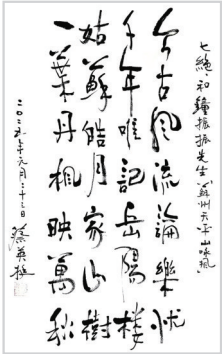 七絕、和鐘振振先生蘇州天平山詠楓
今古風流論樂忧
千年唯記岳陽樓
姑蘇皓月家山樹
一葉丹楓映萬秋
二〇二五年元月二十二日 蔡英挺